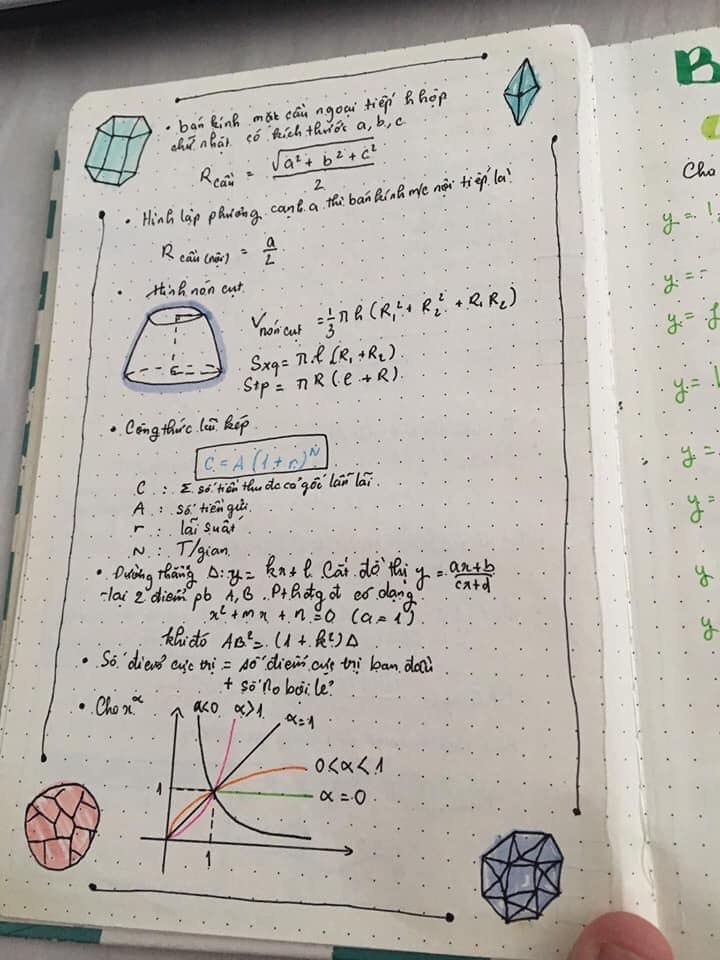 • bán kính mặt cầu ngoại tiếp h hộp
chữ nhật có kích thước a, b, c
R cầu = √(a² + b² + c²) / 2
• Hình lập phương cạnh a thì bán kính m/c nội tiếp là:
R cầu (nội) = a/2
• Hình nón cụt
V nón cụt = 1/3 π h (R₁² + R₂² + R₁ R₂)
Sxq = π l (R₁ + R₂)
Stp = π R (l + R).
• Công thức lãi kép
C = A (1 + r)^N
C : Σ số tiền thu đc cả gốc lẫn lãi
A : số tiền gửi
r : lãi suất
N : T/gian
• Đường thẳng Δ: y = kx + l cắt đồ thị y = (ax+b)/(cx+d)
tại 2 điểm pb A, B. Pt hđgđ có dạng
x² + mx + n = 0 (a = 1)
khi đó AB² = (1 + k²) Δ
• Số điểm cực trị = số điểm cực trị ban đầu
+ số no bội lẻ
• Cho x^α
α<0 α>1 α=1
0<α<1
α=0
1
1
B
Cho
y = 1
y = -
y =
y =
y =
y =
y
y